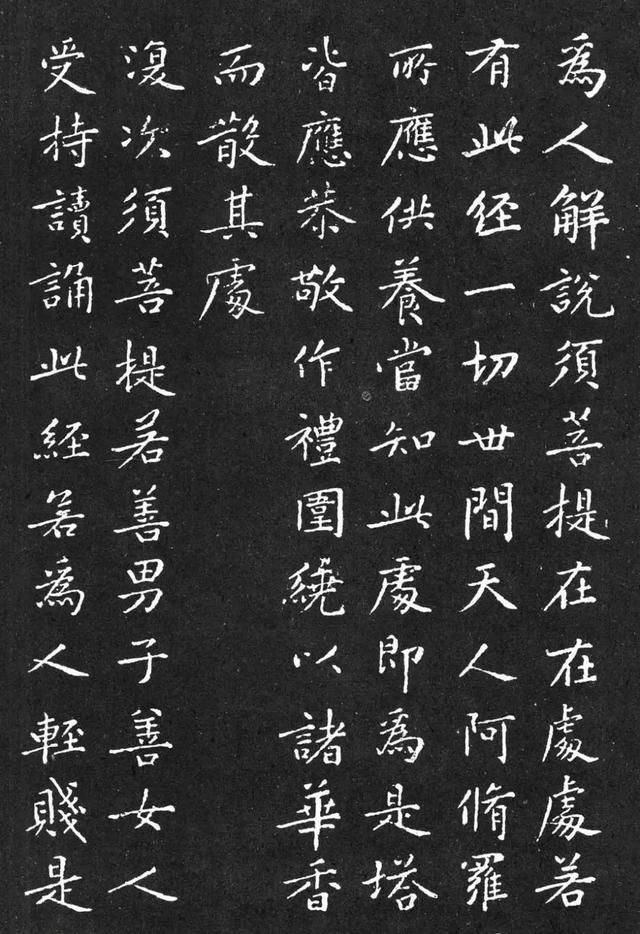 為人解説須菩提在在處處若
有此経一切世間天人阿脩羅
所應供養當知此處即為是塔
皆應恭敬作禮圍繞以諸華香
而散其處
復次須菩提若善男子善女人
受持讀誦此經若為人輕賤是